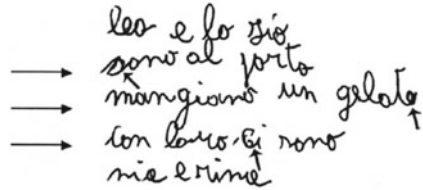 leo e lo zio
sono al porto
mangiano un gelato
con laura. Ci sono
mia e rina